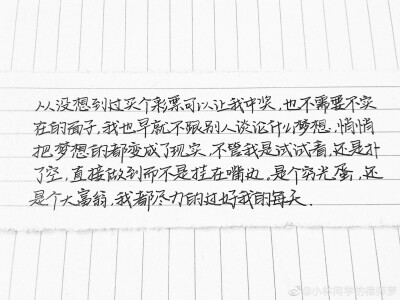 从没想到过买个彩票可以让我中奖,也不需要不实
在的面子,我也早就不跟别人谈论什么梦想,悄悄
把梦想的都变成了现实,不管我是试试看,还是扑
了空,直接做到而不是挂在嘴边,是个穷光蛋,还
是个大富翁,我都尽力的过好我的每天.